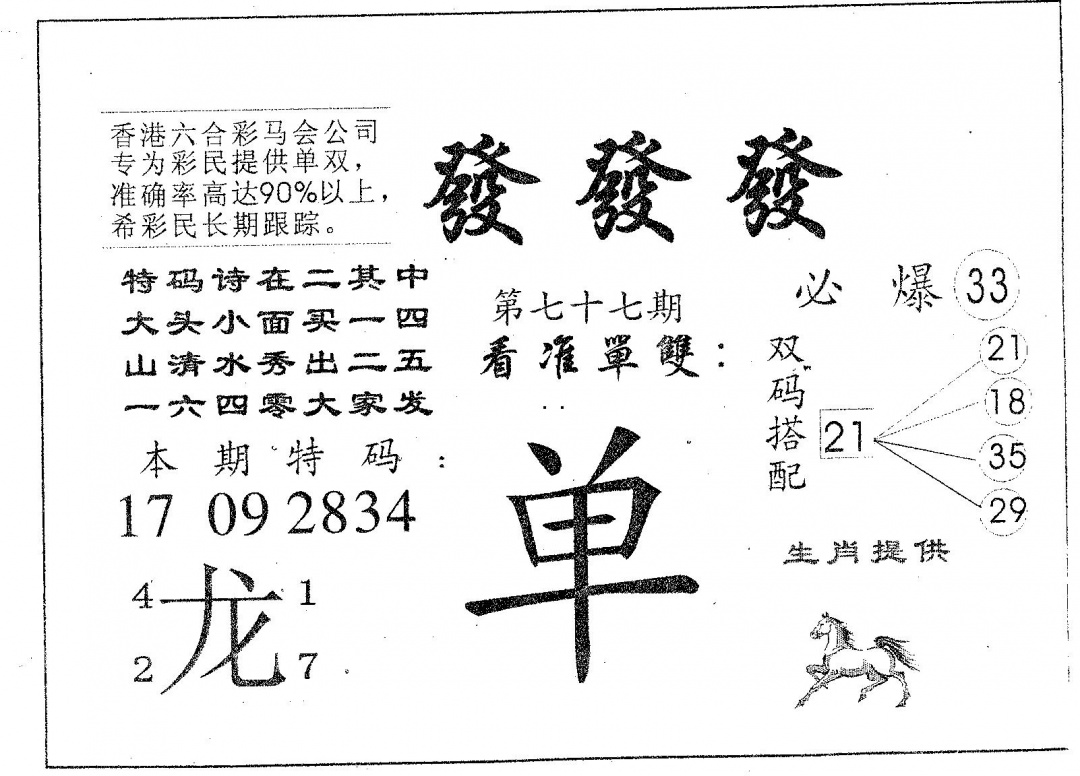 香港六合彩马会公司
专为彩民提供单双，
准确率高达90%以上，
希彩民长期跟踪。
發發發
特码诗在二其中
大头小面买一四
山清水秀出二五
一六四零大家发
第七十七期
看准單雙：
必爆 33
双码搭配
21
21
18
35
29
本期特码：
17 09 28 34
单
生肖提供
4 1
龙
2 7